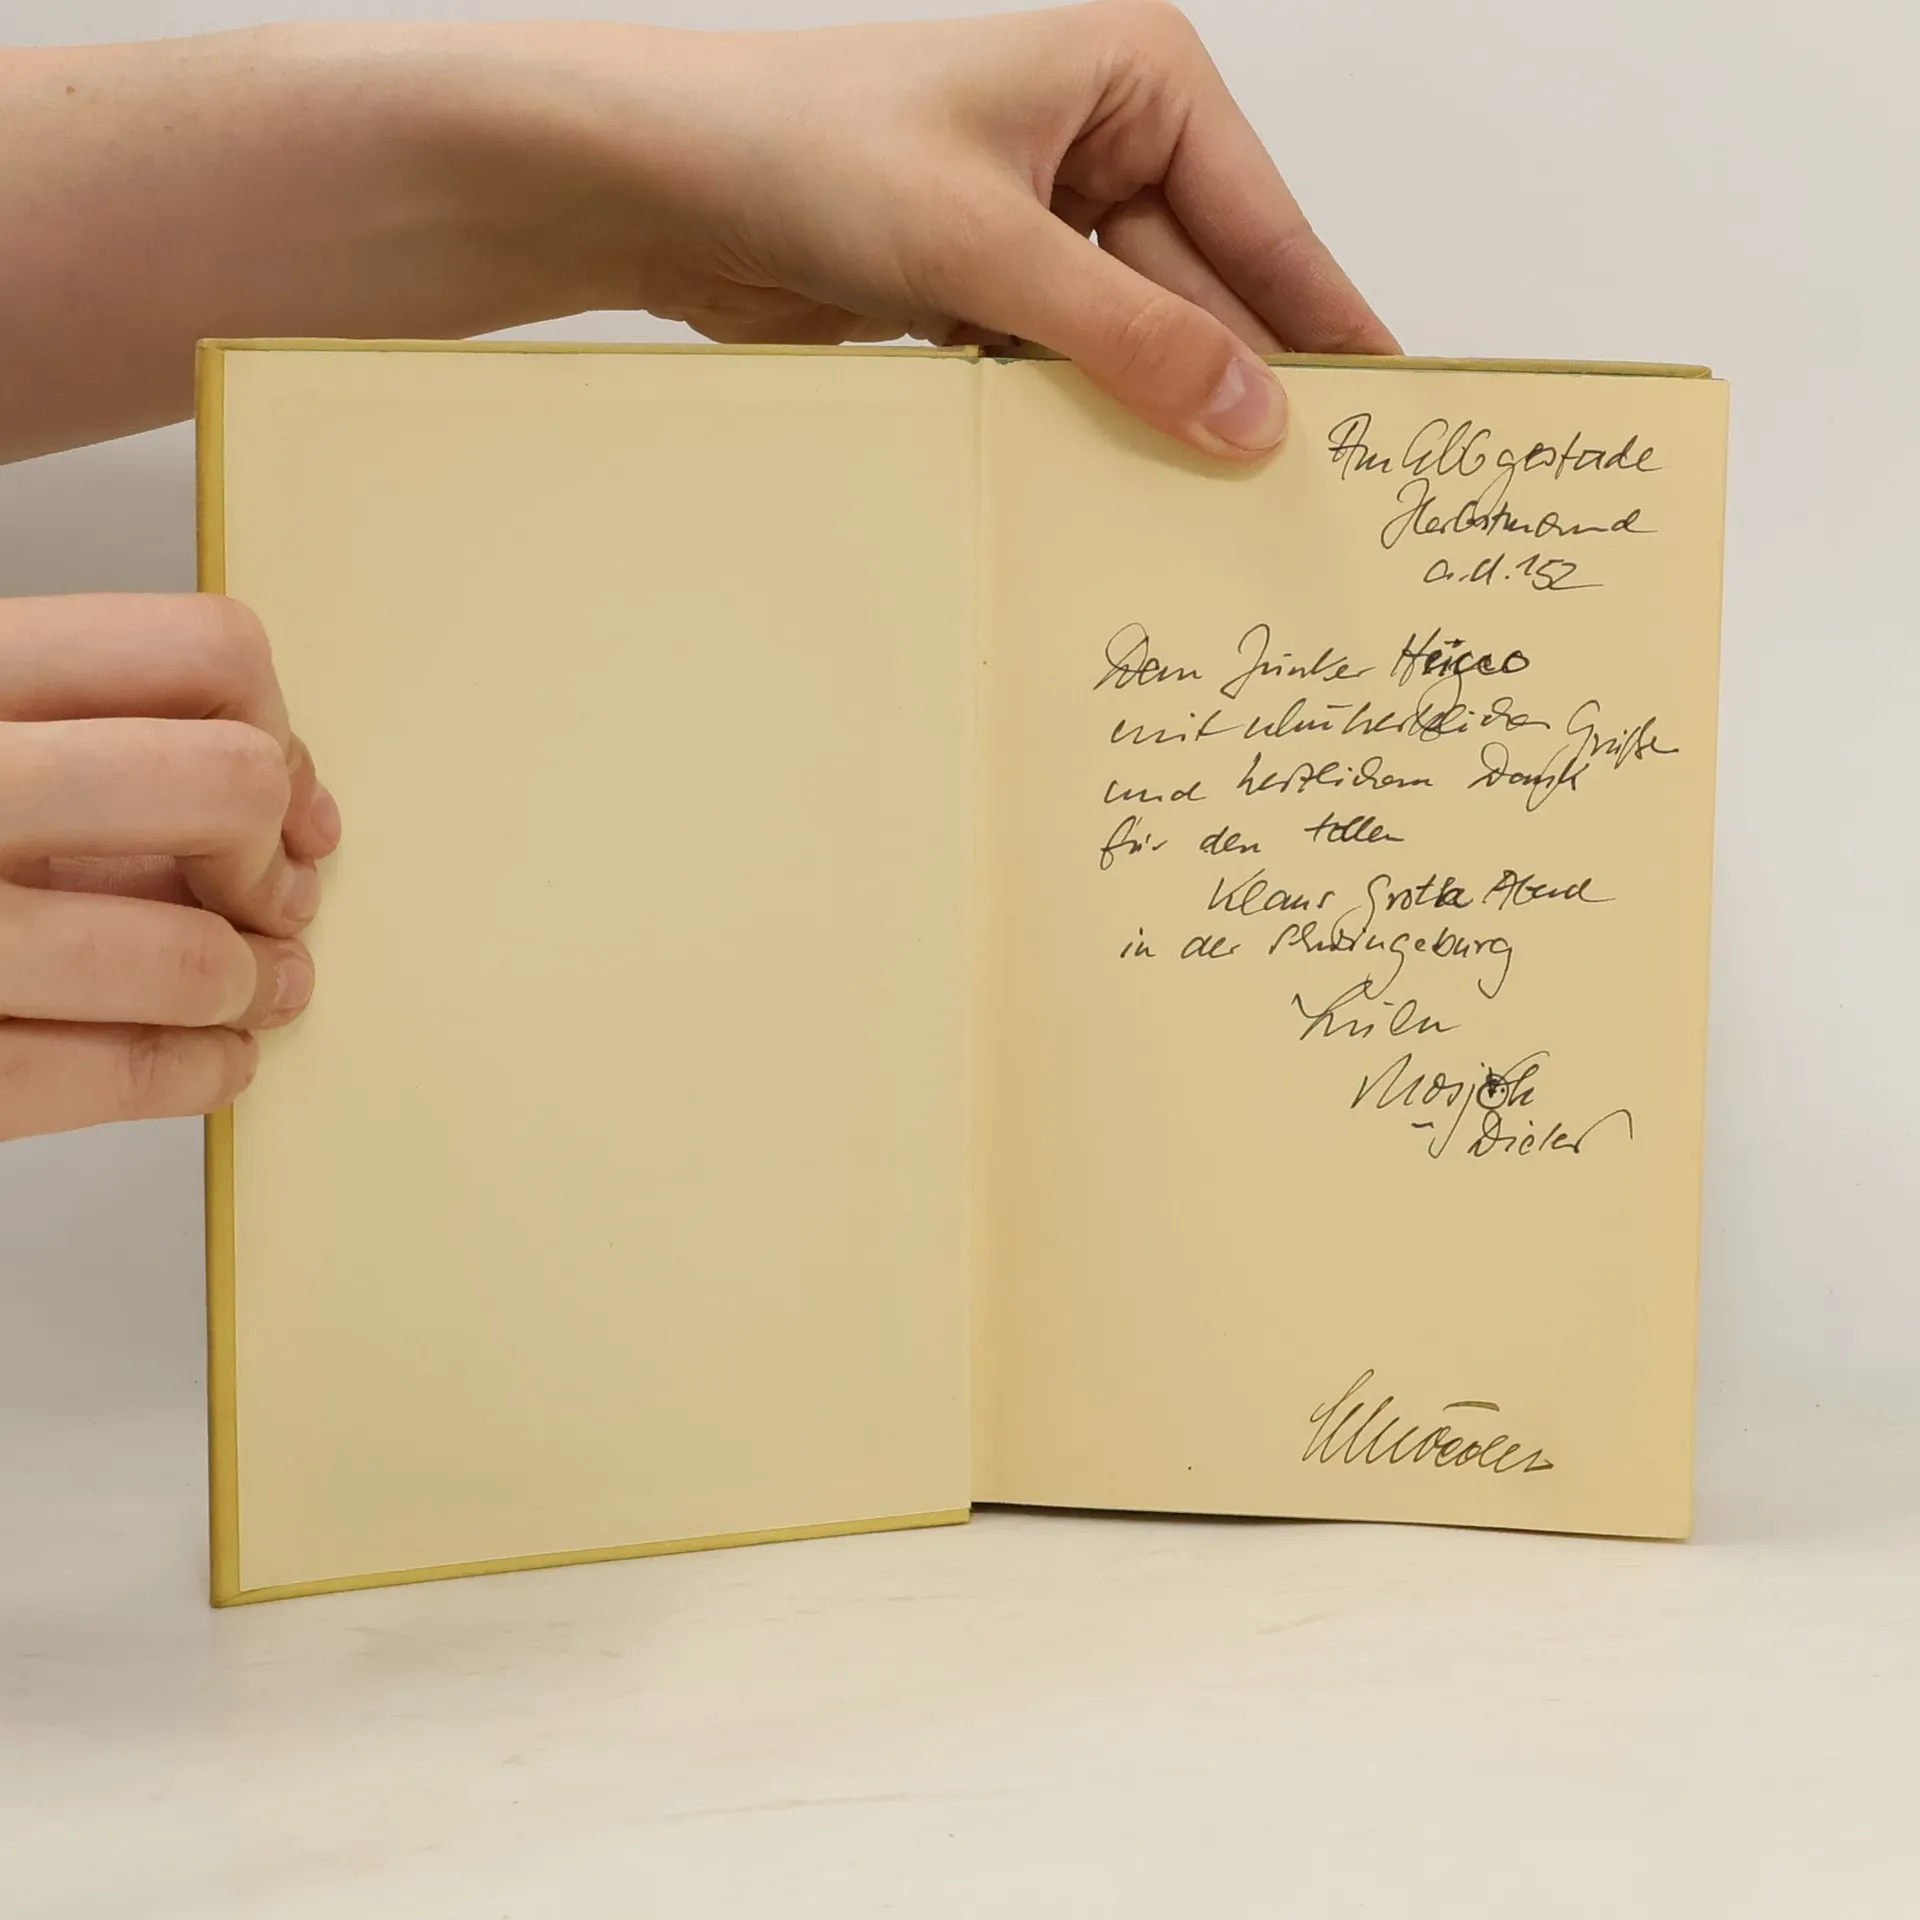 Am Elbgestade
Herbstmond
a. U. 152
Dem Junker
mit uhuherzlichen Grüßen
und herzlichem Dank
für den tollen
Klaus Groth Abend
in der Schwingeburg
Lulu
Dieter